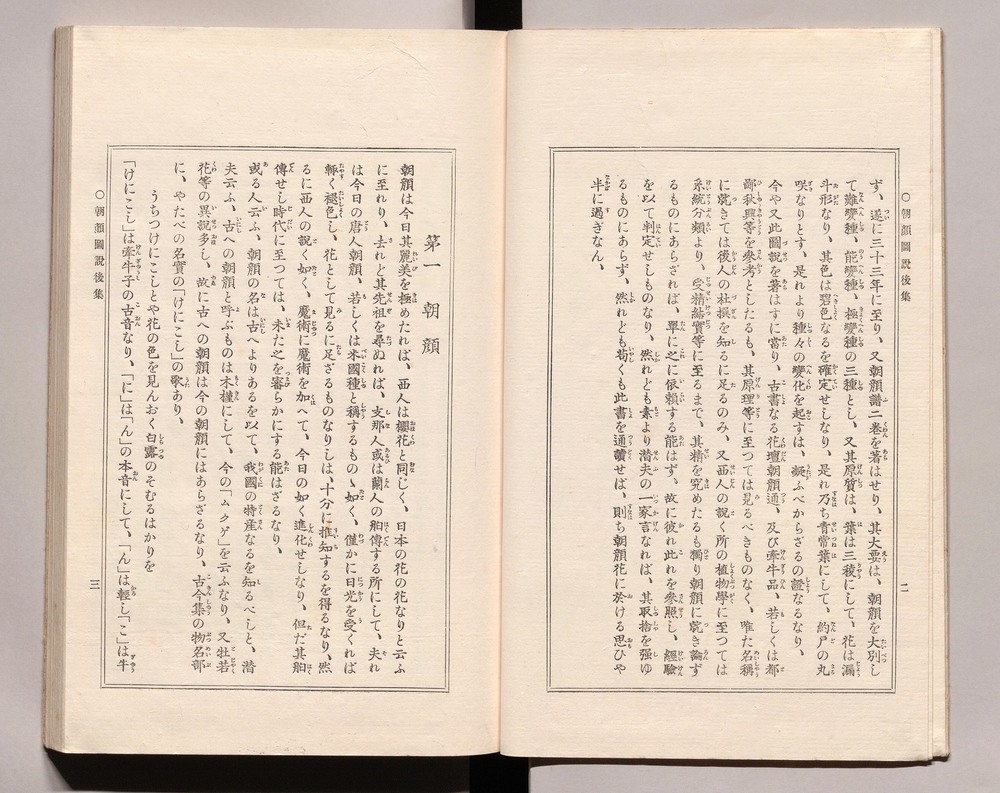 ○朝顔圖說後集
二
ず、遂に三十三年に至り、又朝顔譜二卷を著はせり、其大要は、朝顔を大別し
て難變種、能變種、極變種の三種とし、又其原質は、葉は三稜にして、花は漏
斗形なり、其色は碧色なるを確定せしなり、是れ乃ち青常葉にして、約戸の丸
咲なりとす、是れより種々の變化を起すは、疑ふべからざるの證なるなり、
今や又此圖說を著はすに當り、古書なる花壇朝顔通、及び牽牛品、若しくは都
鄙秋興等を參考としたるも、其原理等に至つては見るべきものなく、唯た名稱
に就きては後人の杜撰を知るに足るのみ、又西人の說く所の植物學に至つては
系統分類より、受精結實等に至るまで、其精を究めたるも獨り朝顔に就き論ず
るものにあらざれば、單に之に依賴する能はず、故に彼れ此れを參照し、經驗
を以て判定せしものなり、然れども素より潜夫の一家言なれば、其取捨を强ゆ
るものにあらず、然れども苟くも此書を通讀せば、則ち朝顔花に於ける思ひや
半に過ぎなん、
第一　朝顔
朝顔は今日其麗美を極めたれば、西人は櫻花と同じく、日本の花の花なりと云ふ
に至れり、去れど其先祖を尋ぬれば、支那人或は蘭人の舶傳する所にして、夫れ
は今日の唐人朝顔、若しくは米國種と稱するものゝ如く、僅かに日光を受くれば
輙く褪色し、花として見るに足ざるものなりしは、十分に推知するを得るなり、然
るに西人の說く如く、魔術に魔術を加へて、今日の如く進化せしなり、但だ其舶
傳せし時代に至つては、未た之を審らかにする能はざるなり、
或る人云ふ、朝顔の名は古へよりあるを以て、我國の特産なるを知るべしと、潜
夫云ふ、古への朝顔と呼ぶものは木槿にして、今の「ムクゲ」を云ふなり、又牡若
花等の異說多し、故に古への朝顔は今の朝顔にはあらざるなり、古今集の物名部
に、やたべの名實の「けにこし」の歌あり、
うちつけにこしとや花の色を見んおく白露のそむるはかりを
「けにこし」は牽牛子の古音なり、「に」は「ん」の本音にして、「ん」は輕し「こ」は牛
○朝顔圖說後集
三